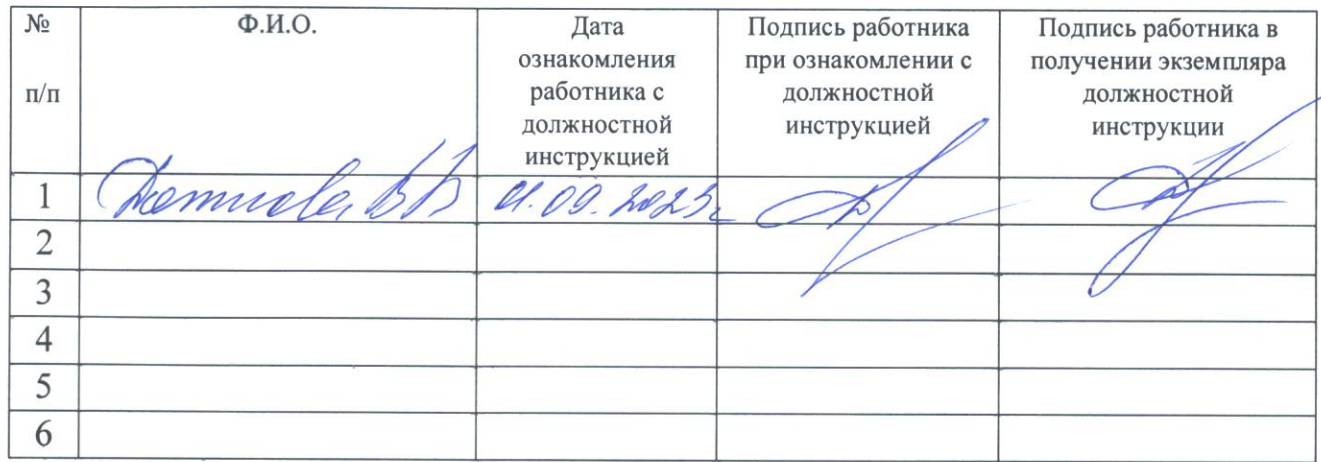 № п/п
Ф.И.О.
Дата ознакомления работника с должностной инструкцией
Подпись работника при ознакомлении с должностной инструкцией
Подпись работника в получении экземпляра должностной инструкции
1 В В 01.09.2023г
2
3
4
5
6